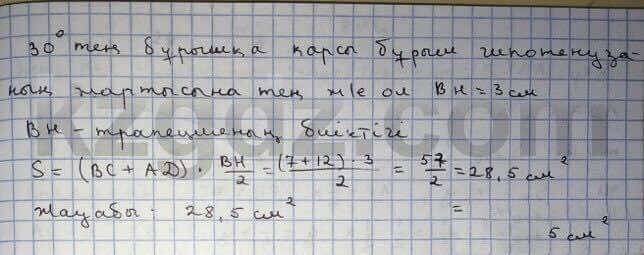 30° тең бұрышқа қарсы бұрыш гипотенуза-
ның жартысына тең ж/е ол BH = 3 см
BH - трапецияның биіктігі
S = (BC + AD) · BH/2 = (7+12) · 3/2 = 57/2 = 28,5 см²
Жауабы: 28,5 см²
=
5 см²
kzgdz.com